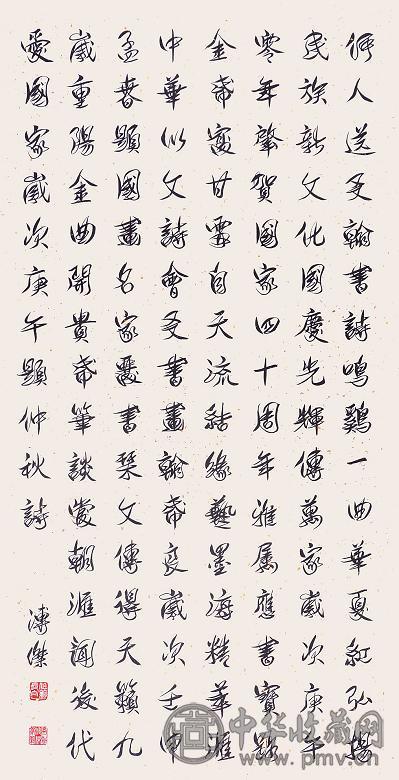 人送翰書詩鳴鷄一曲華夏紅弘揚
民族新文化國慶光輝傳萬家歲次庚午
年賀國家四十周年雅属應書寶
金甘露自天流結緣藝墨海精華滙
中華以文詩會書畫翰歲次壬申
孟春題國畫名家書琹文傳得天籟九
歲重陽金曲開貴筆談朝滙後代
愛國家歲次庚午題仲秋詩
溥傑
中华收藏网
www.pmv.cn